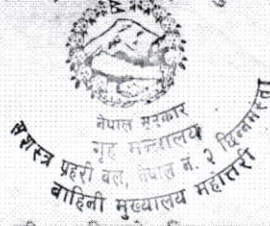 नेपाल सरकार
गृह मन्त्रालय
सशस्त्र प्रहरी बल, नेपाल नं. २ छिन्नमस्ता
बाहिनी मुख्यालय महोत्तरी